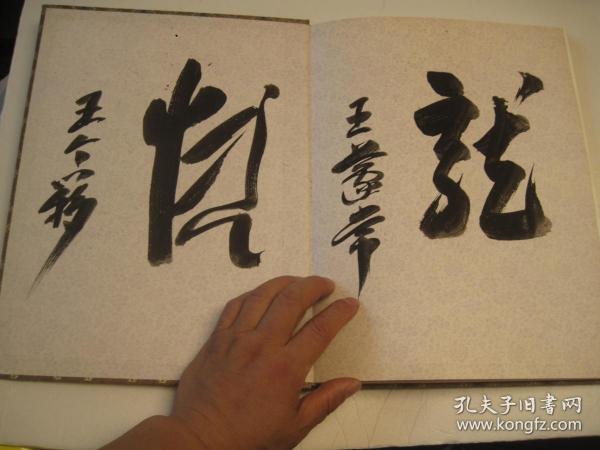 龍
王蘧常
王个簃
孔夫子旧书网
www.kongfz.com